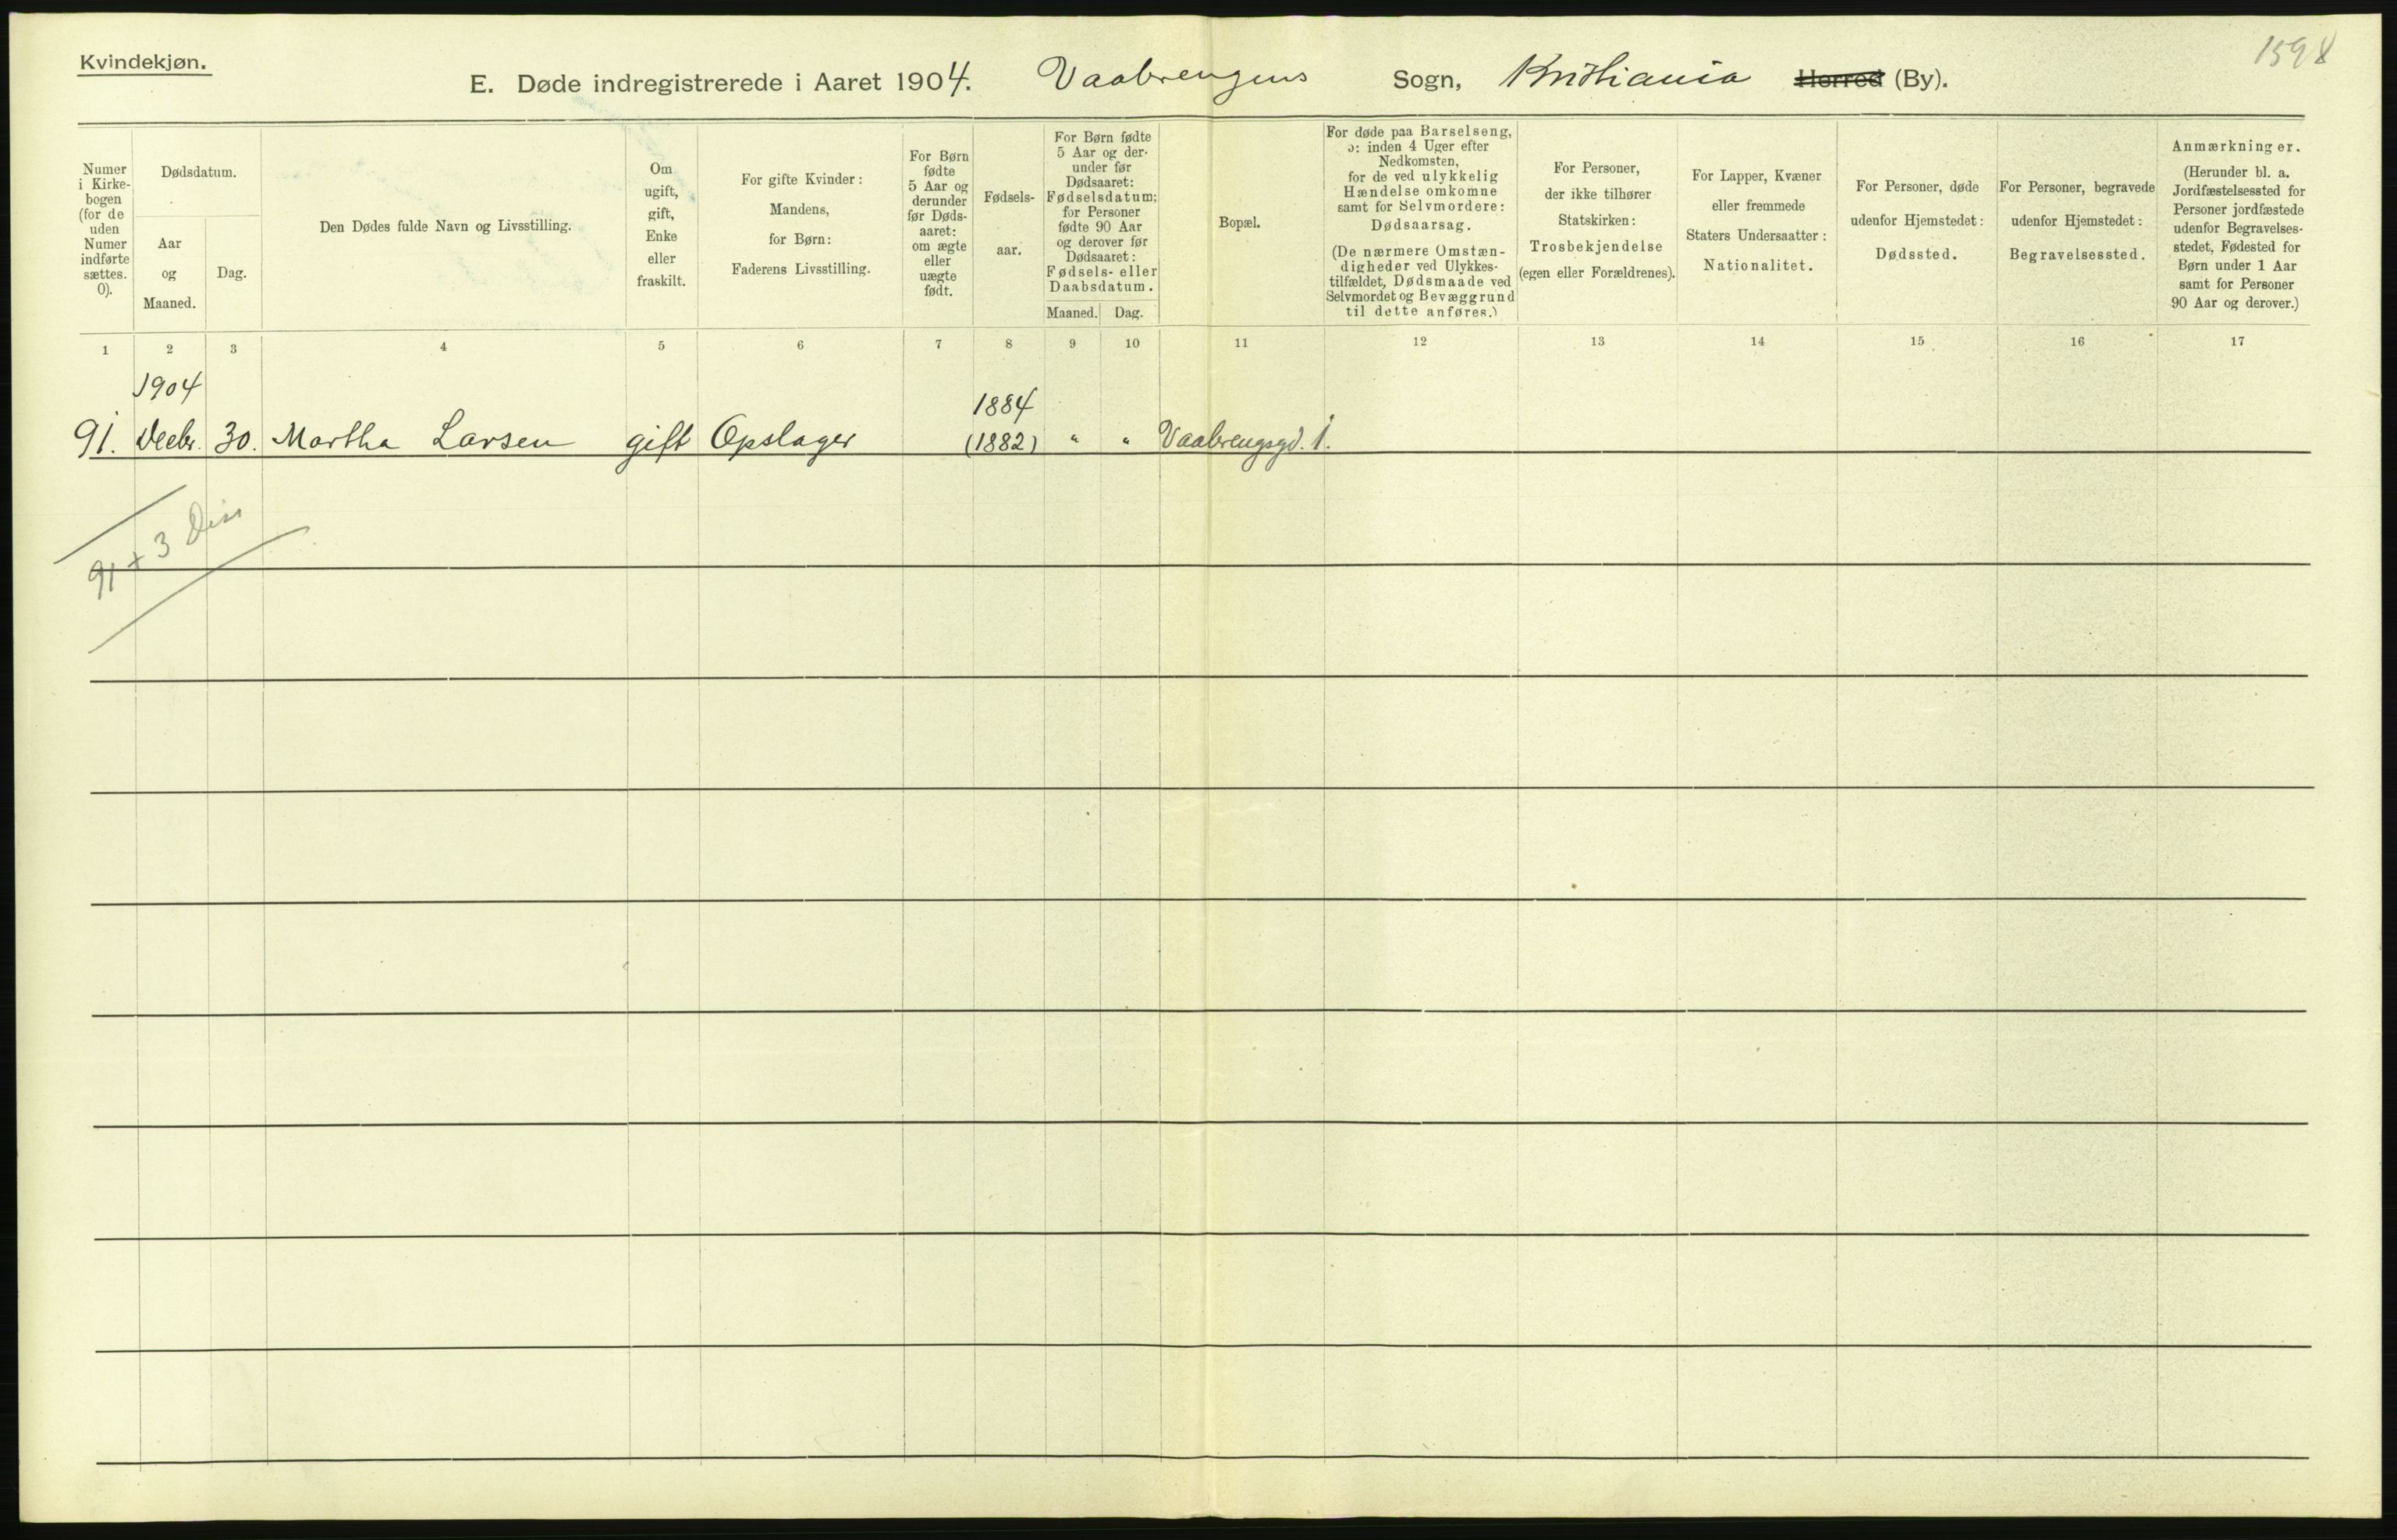 Kvindekjøn.
1598
E. Døde indregistrerede i Aaret 1904. Vaalerengens Sogn, Kristiania Herred (By).
Numer
i Kirke-
bogen
(for de
uden
Numer
indførte
sættes.
0).
Dødsdatum.
Aar
og
Maaned.
Dag.
Den Dødes fulde Navn og Livsstilling.
Om
ugift,
gift,
Enke
eller
fraskilt.
For gifte Kvinder:
Mandens,
for Børn:
Faderens Livsstilling.
For Børn
fødte
5 Aar og
derunder
før Døds-
aaret:
om ægte
eller
uægte
født.
Fødsels-
aar.
For Børn fødte
5 Aar og der-
under før
Dødsaaret:
Fødselsdatum;
for Personer
fødte 90 Aar
og derover før
Dødsaaret:
Fødsels- eller
Daabsdatum.
Maaned. Dag.
Bopæl.
For døde paa Barselseng,
ɔ: inden 4 Uger efter
Nedkomsten,
for de ved ulykkelig
Hændelse omkomne
samt for Selvmordere:
Dødsaarsag.
(De nærmere Omstæn-
digheder ved Ulykkes-
tilfældet, Dødsmaade ved
Selvmordet og Bevæggrund
til dette anføres.)
For Personer,
der ikke tilhører
Statskirken:
Trosbekjendelse
(egen eller Forældrenes).
For Lapper, Kvæner
eller fremmede
Staters Undersaatter:
Nationalitet.
For Personer, døde
udenfor Hjemstedet:
Dødssted.
For Personer, begravede
udenfor Hjemstedet:
Begravelsessted.
Anmærkninger.
(Herunder bl. a.
Jordfæstelsessted for
Personer jordfæstede
udenfor Begravelses-
stedet, Fødested for
Børn under 1 Aar
samt for Personer
90 Aar og derover.)
1 2 3 4 5 6 7 8 9 10 11 12 13 14 15 16 17
1904 1884
91. Decbr. 30. Martha Larsen gift Opslager (1882) " " Vaalerengsgd. 1.
91 + 3 Diss